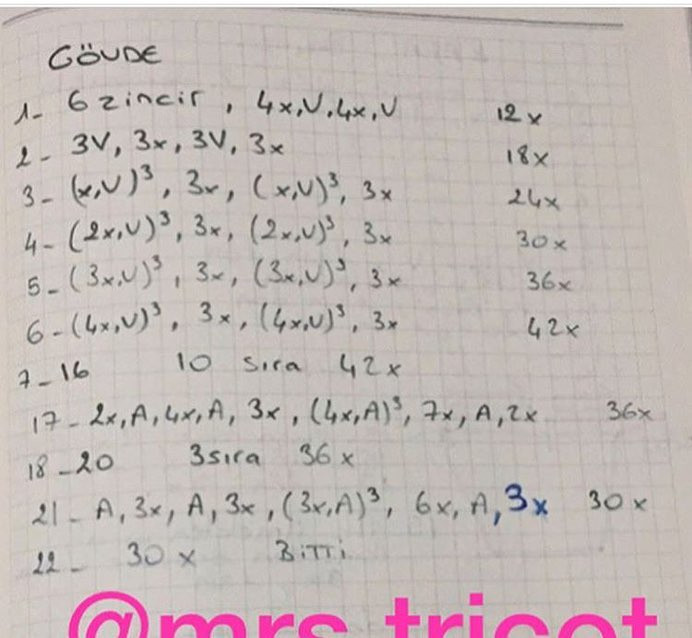 GÖVDE
1- 6 zincir, 4x,V,4x,V 12x
2- 3V, 3x, 3V, 3x 18x
3- (x,V)³, 3x, (x,V)³, 3x 24x
4- (2x,V)³, 3x, (2x,V)³, 3x 30x
5- (3x,V)³, 3x, (3x,V)³, 3x 36x
6- (4x,V)³, 3x, (4x,V)³, 3x 42x
7-16 10 sıra 42x
17- 2x, A, 4x, A, 3x, (4x,A)³, 7x, A, 2x 36x
18-20 3sıra 36x
21- A, 3x, A, 3x, (3x,A)³, 6x, A, 3x 30x
22- 30x BiTTi
@mrs.tricot